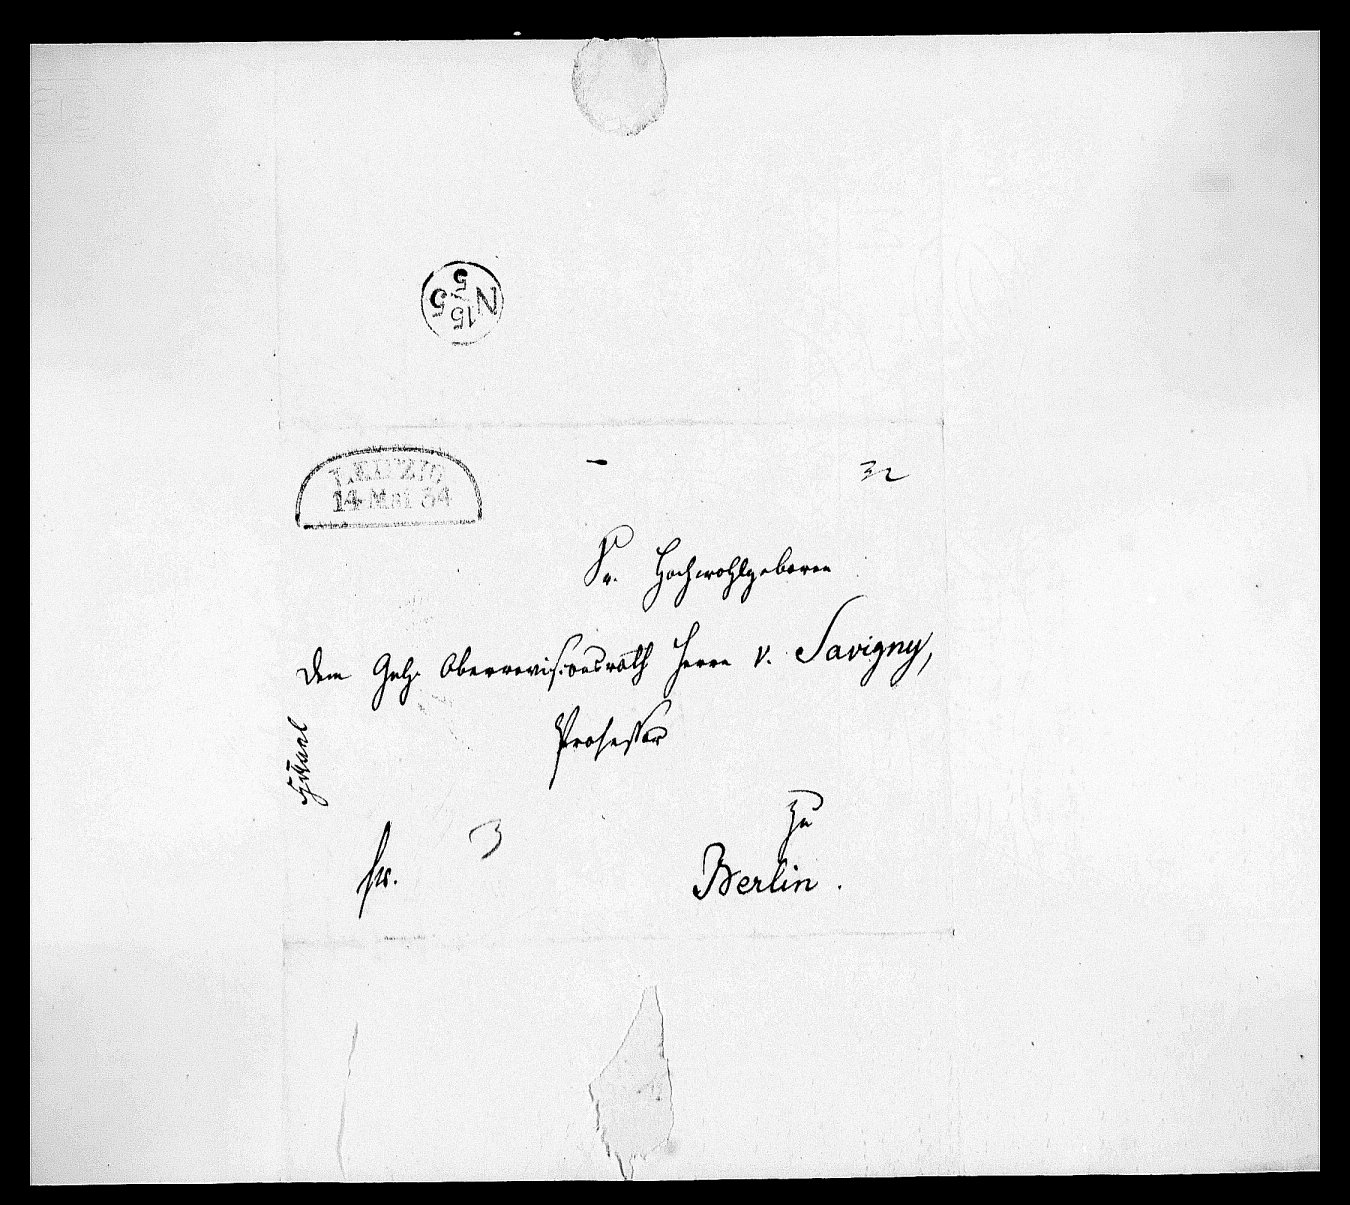 N 15/5 5
LEIPZIG
14 Mai 34
32
Sr. Hochwohlgeboren
dem Geh. Oberrevisionsrath Herrn v. Savigny,
Professor
zu
Berlin.
fr.
3